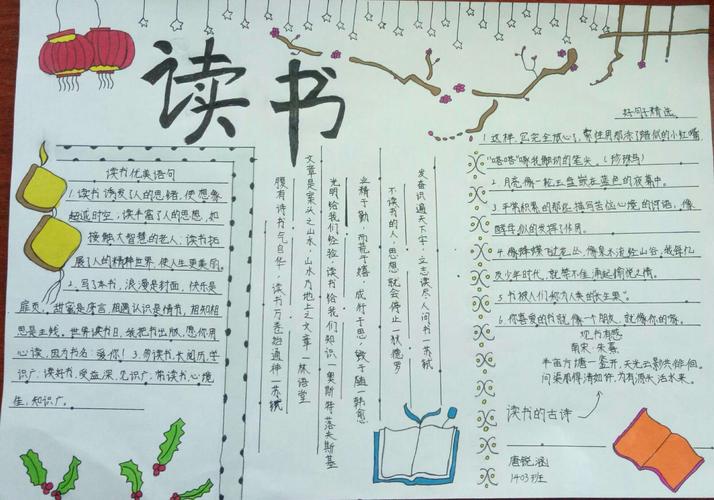 读书
读书优美语句
1.读书诱发了人的思绪,使想像
超诡时空;读书富了人的思想,如
接触大智慧的老人;读书拓
展了人的精神世界,使人生更美丽。
2.写了本书,浪漫是封面,快乐是
扉页,甜蜜是序言,相遇认识是情节,相知相
思是主线。世界读书日,我把书出版,愿你用
心读,因为书名:爱你!3.勤读书,长阅历,学
识广;读好书,受益深,见识广;带读书,心境
佳,知识广。
发奋识遍天下字,立志读尽人间书—苏轼
不读书的人,思想就会停止—狄德罗
业精于勤,而荒于嬉,成行于思,毁于随—韩愈
光明给我们经验,读书给我们知识—奥斯特洛夫斯基
文章是案头之山水,山水乃地上之文章—林语堂
腹有诗书气自华,读书万卷始通神—苏轼
好句子精选
1.这样,它完全放心了,索性用那涂了蜡似的小红嘴,
"嗒嗒"啄我颤动的笔尖。《珍珠鸟》
2.月亮像一轮玉盘嵌在蓝色的夜幕中。
3.平常积累的那些描写苦位心境的词语,像
酵母似的发挥了作用。
4.像蜻蜓飞过花丛,像泉水流经山谷,我每忆
及少年时代,就禁不住涌起愉悦之情。
5.书被人们称为人类的长生果。
6.你喜爱的书就像一个朋友,就像你的家。
观书有感
南宋·朱熹
半亩方塘一鉴开,天光云影共徘徊。
问渠那得清如许,为有源头活水来。
读书的古诗
唐锐涵
1403班